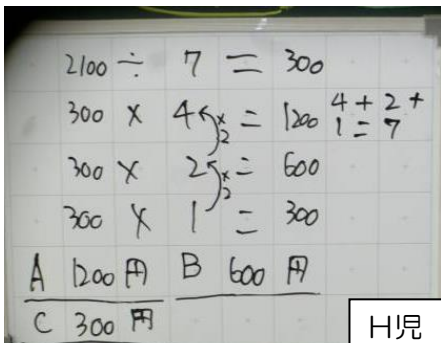 2100 ÷ 7 = 300
300 × 4 = 1200 4+2+
×2 1=7
300 × 2 = 600
×2
300 × 1 = 300
A 1200円 B 600円
C 300円
H児